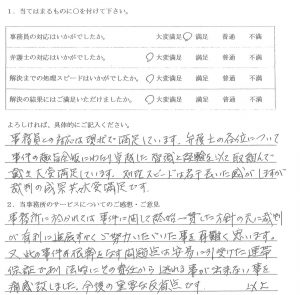 1. 当てはまるものに○を付けて下さい。
事務員の対応はいかがでしたか。 大変満足 満足 普通 不満
弁護士の対応はいかがでしたか。 大変満足 満足 普通 不満
解決までの処理スピードはいかがでしたか。 大変満足 満足 普通 不満
解決の結果にはご満足いただけましたか。 大変満足 満足 普通 不満
よろしければ、具体的にご記入ください。
事務員の対応は現状で満足しています。弁護士の各位について
事件の趣旨全般にわたり卓越した知識と経験を以て取組んで
大変満足しています。対応スピードは若干長いた感がしますが
裁判の成果が大変満足です。
2. 当事務所のサービスについてのご感想・ご意見
事務所に於かれては事件に関して終始一貫した方針の元に裁判
が有利に進展すべくご努力いただいた事を有難く思います。
又、此の事件の根幹をなす問題点は安易に引受けた連帯
保証であり法的にその責任から逃れる事が出来ない事を
痛感致しました。今後の重要な反省点です。 以上